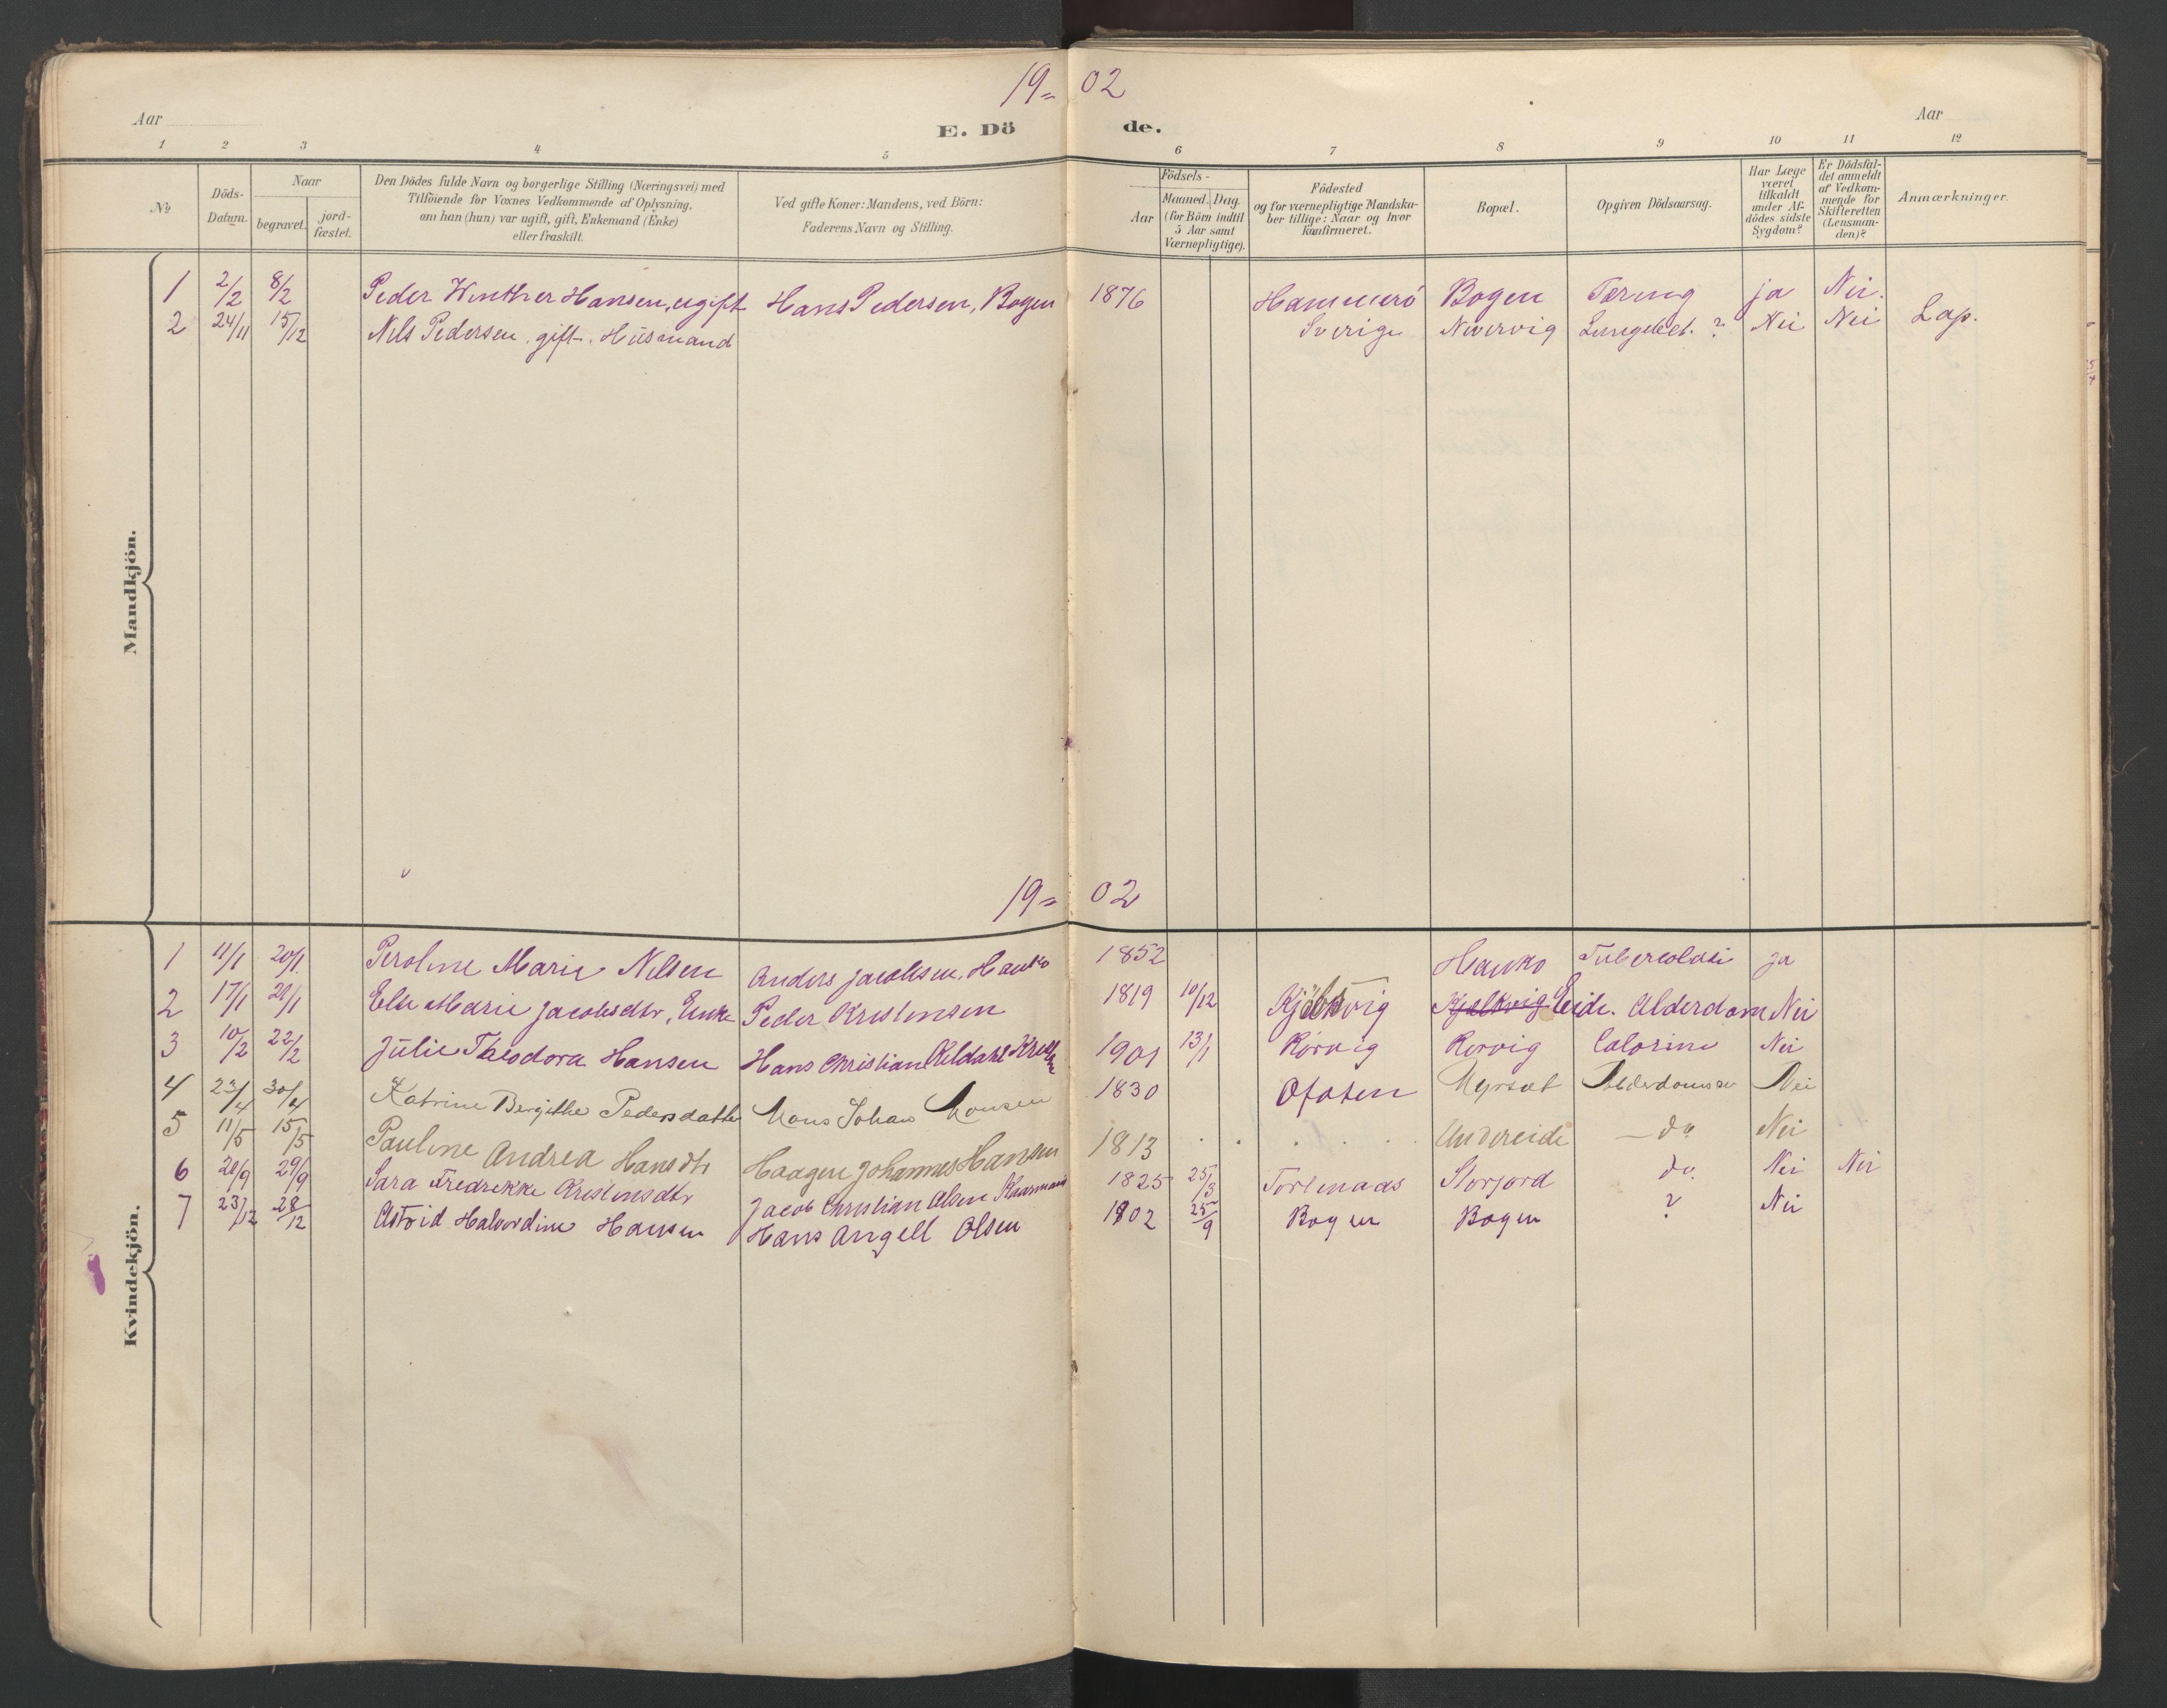 19= 02
Aar E. Dö de. Aar
1 2 3 4 5 6 7 8 9 10 11 12
No
Döds-Datum.
Naar
begravet.
jord-fæstet.
Den Dödes fulde Navn og borgerlige Stilling (Næringsvei) med
Tilföiende for Voxnes Vedkommende af Oplysning,
om han (hun) var ugift, gift, Enkemand (Enke)
eller fraskilt.
Ved gifte Koner: Mandens, ved Börn:
Faderens Navn og Stilling.
Födsels-
Aar
Maaned. Dag.
(for Börn indtil
5 Aar samt
Værnepligtige).
Födested
og for værnepligtige Mandska-
ber tillige: Naar og hvor
konfirmeret.
Bopæl.
Opgiven Dödsaarsag.
Har Læge
været
tilkaldt
under Af-
dödes sidste
Sygdom?
Er Dödsfal-
det anmeldt
af Vedkom-
mende for
Skifteretten
(Lensman-
den)?
Anmærkninger.
Mandkjön.
1 2/2 8/2 Peder Winther Hansen, ugift Hans Pedersen, Bogen 1876 Hammerö Bogen Tæring ja Nei.
2 24/11 15/12 Nils Pedersen, gift. Husmand Sverige Nevervig ? Nei Nei Lap.
19= 02
Kvindekjön.
1 11/1 20/1 Peroline Marie Nilsen Anders Jacobsen, Hauko 1852 Hauko Tubercolosi ja
2 17/1 28/1 Else Marie Jacobsdtr, Enke Peder Kristensen 1819 10/12 Kjelkvig Eide. Alderdom Nei
3 10/2 22/2 Julie Theodora Hansen Hans Christian 1901 13/1 Korvig Korvig Colorine Nei
4 23/4 30/4 Katrine Bergithe Pedersdatter Mons Johan Monsen 1830 Ofoten Myrset Nei
5 11/5 15/5 Pauline Andrea Hansdtr Haagen Johannes Hansen 1813 . . . . . Undereide — do Nei
6 20/9 29/9 Sara Fredrekke Kristensdtr Jacob Christian Olsen 1825 25/3 Storjord do. Nei Nei
7 23/12 28/12 Astrid Halvordine Hansen Hans Angell Olsen 1902 25/9 Bogen Bogen ? Nei